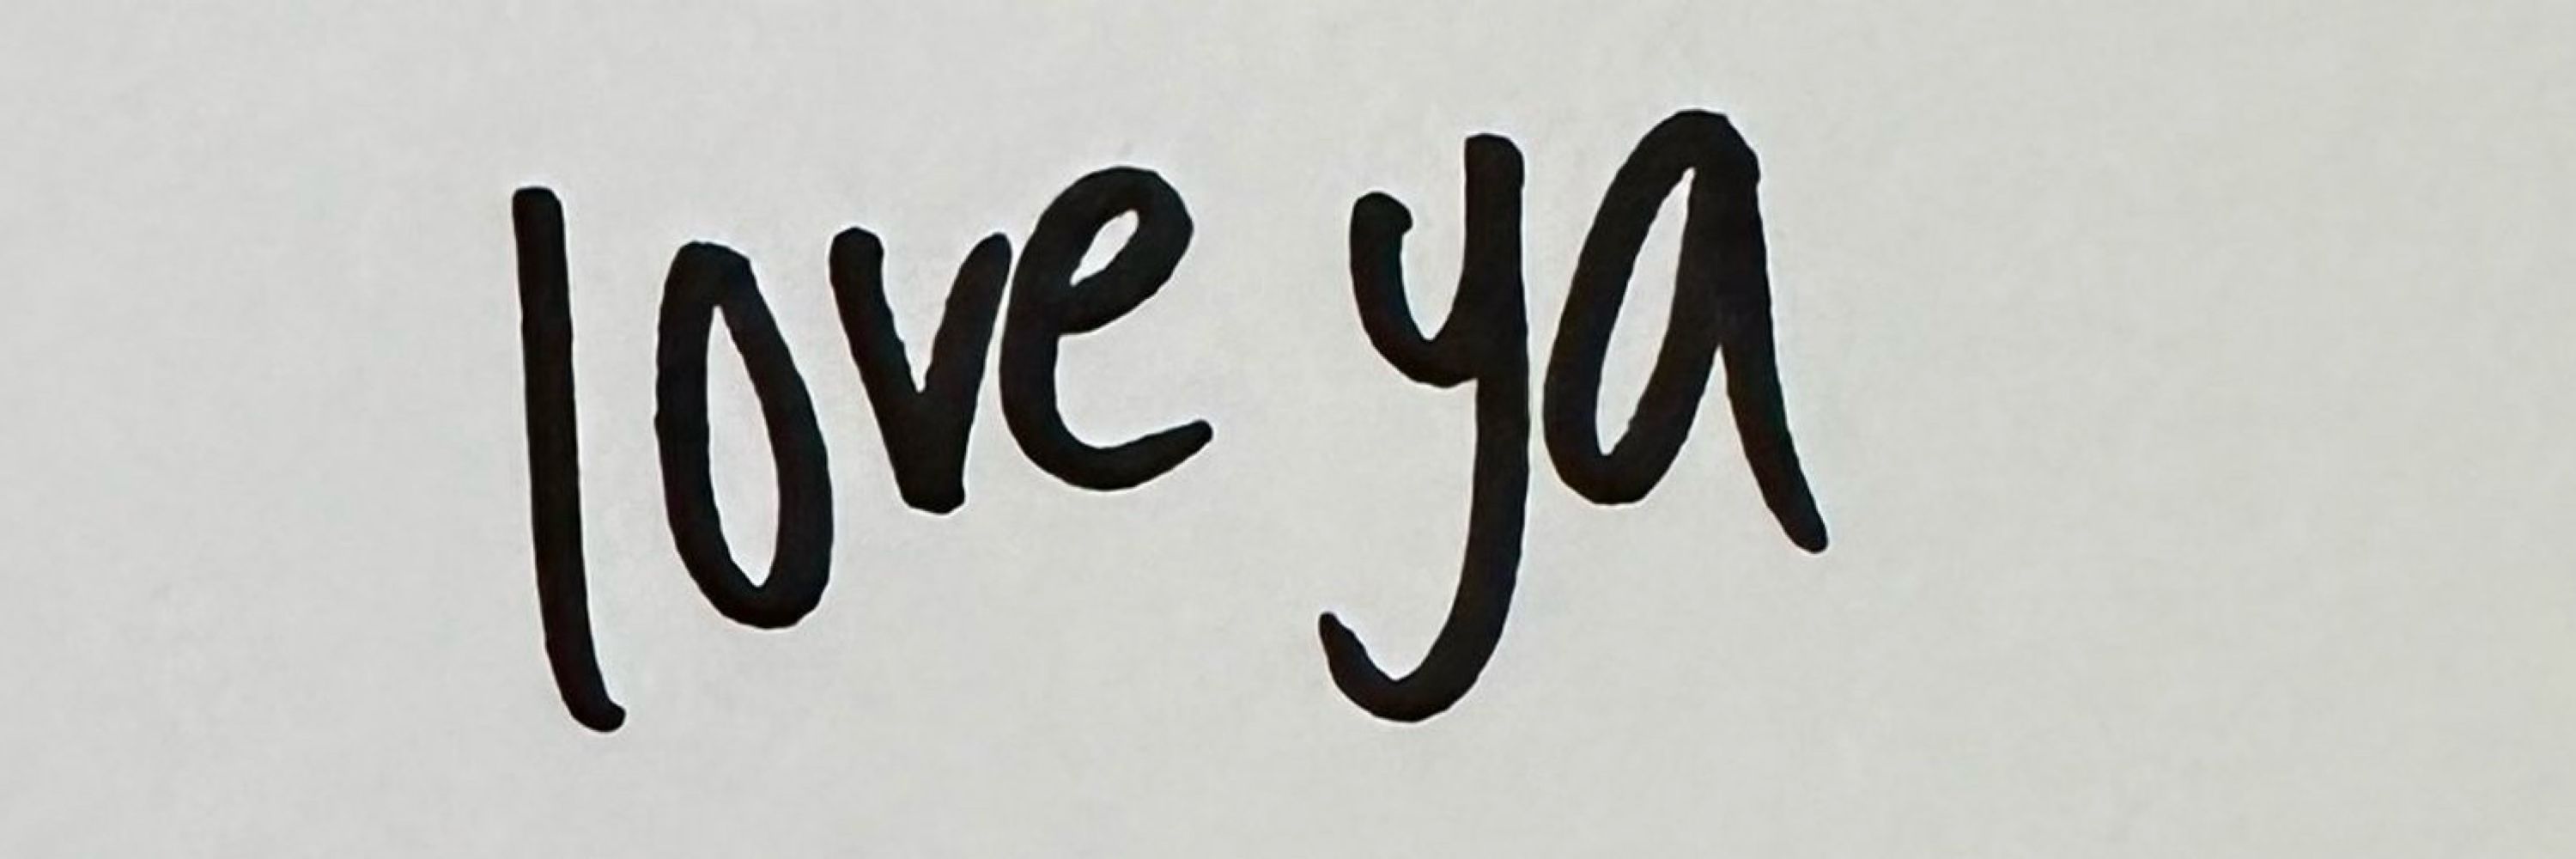 love ya